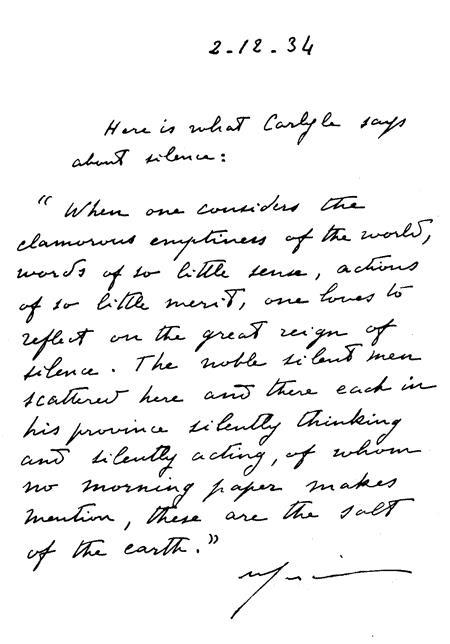 2-12-34
Here is what Carlyle says
about silence:
"When one considers the
clamorous emptiness of the world,
words of so little sense, actions
of so little merit, one loves to
reflect on the great reign of
silence. The noble silent men
scattered here and there each in
his province silently thinking
and silently acting, of whom
no morning paper makes
mention, these are the salt
of the earth."